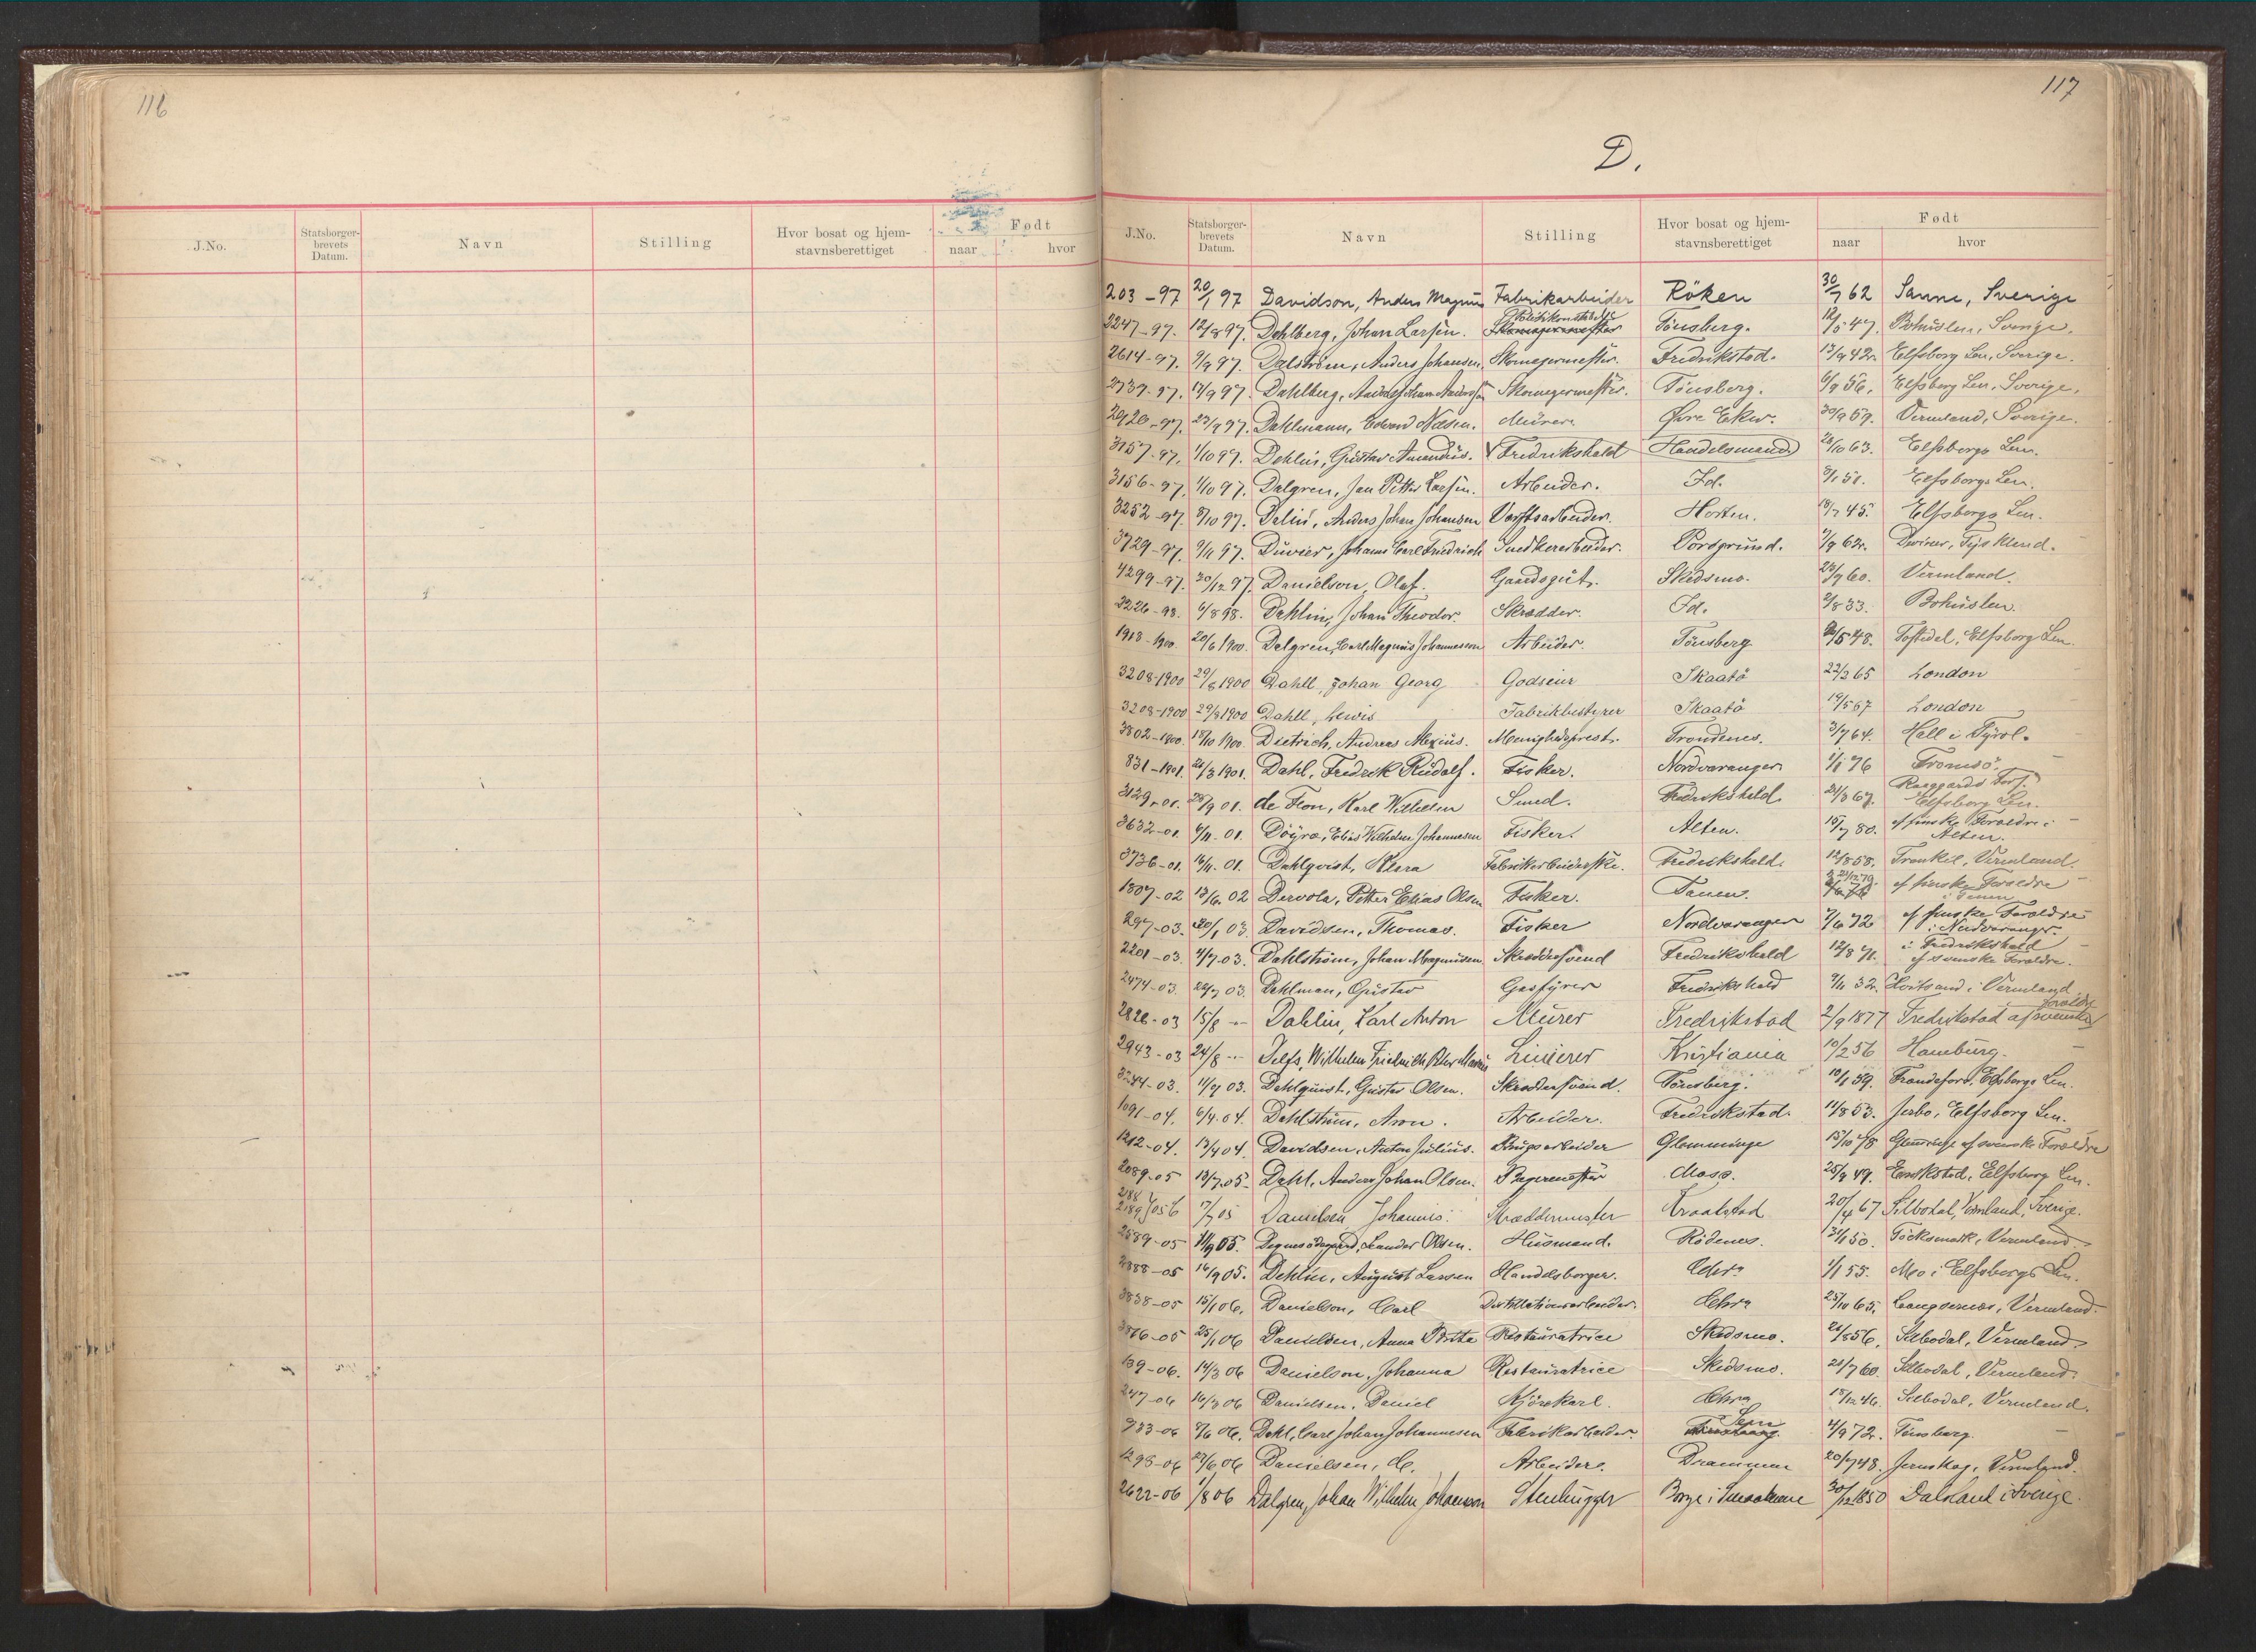 116
J.No.
Statsborger-
brevets
Datum.
Navn
Stilling
Hvor bosat og hjem-
stavnsberettiget
Født
naar
hvor
117
D.
J.No.
Statsborger-
brevets
Datum.
Navn
Stilling
Hvor bosat og hjem-
stavnsberettiget
Født
naar
hvor
203-97 20/1 97 Davidson, Anders Magnus Fabrikarbeider Röken 30/7 62 Sanne, Sverige
2247-97. 12/8 97. Dahlberg, Johan Larsen. Politikonstabel Tönsberg. 12/5 47. Bohuslen, Sverige.
2614-97. 9/9 97. Dalström, Anders Johansen, Skomagermester. Fredrikstad. 13/9 42. Elfsborg Len, Sverige.
2737-97. 17/9 97. Dahlberg, Skomagermester. Tönsberg. 6/9 56. Elfsborg Len, Sverige.
2920-97. 23/9 97. Dahlmann, Edvard Nilsen. Murer. Övre Eker. 30/9 59. Vermland, Sverige.
3157-97. 1/10 97. Dahlin, Gustav Amandus. Fredrikshald Handelsmand 28/10 63. Elfsborgs Len.
3156-97. 1/10 97. Dalgren, Jan Petter Larsen. Arbeider. Id. 3/1 51. Elfsborgs Len.
3252-97. 8/10 97. Dalin, Anders Johan Johansen Verftsarbeider. Horten. 18/7 45. Elfsborgs Len.
3729-97. 9/11 97. Düvier, Johann Carl Friedrich Snedkerarbeider. Porsgrund. 7/9 62. Tyskland.
4299-97. 30/12 97. Danielson, Olaf. Gaardsgut. Skedsmo. 23/9 60. Vermland.
3226-98. 6/8 98. Dahlin, Johan Theodor. Skrædder. Id. 2/8 33. Bohuslen.
1918-1900. 20/6 1900. Dalgren, Carl Magnus Johannessen Arbeider. Tönsberg /5 48. Tostedal, Elfsborg Len.
3208-1900 29/8 1900 Dahll, Johan Georg Godseier Skaatö 22/2 65 London
3208-1900 29/8 1900 Dahll, Lewis Fabrikbestyrer Skaatö 19/5 67 London
3802-1900. 18/10 1900. Dietrich, Andreas Alexius. Menighedsprest. Trondenes. 3/7 64. Hall i Tyrol.
831-1901. 21/3 1901. Dahl, Fredrik Rudolf. Fisker. Nordvaranger 1/1 76 Tromsö.
3129-01. 28/9 01. de Flon, Karl Wilhelm Smed. Fredrikshald 21/3 67. Elfsborg Len.
3632-01. 6/11 01. Döyra, Elias Wilhelm Johannesen Fisker. Alten. 15/7 80. af finske Foraldre i
Alten.
3736-01. 16/11. 01. Dahlqvist, Klara Fabrikarbeiderske. Fredrikshald. 12/8 58. Vermland.
1807-02 13/6. 02 Dervola, Petter Elias Olsen Fisker. Tanen. 21/12 79. af finske Foreldre
i Tanen
297-03. 20/1 03. Davidsen, Thomas. Fisker Nordvaranger 7/6 72 af finske Foreldre
i Nordvaranger.
2201-03. 4/7 03. Dahlström, Johan Magnusen Skræddersvend Fredrikshald 12/8 71. i Fredrikshald
af svenske Foreldre.
2474-03. 22/7 03. Dahlman, Gustav Gasfyrer Fredrikshald 9/11 32. Hvitsand i Vermland
2826-03 15/8 -"- Dahlin, Karl Anton Murer Fredrikstad 2/9 1877 Fredrikstad af svenske
foreldre
2943-03 24/8 -"- Wilhelm Friedrich Linierer Kristiania 10/2 56 Hamburg.
3244-03. 11/9 03. Dahlquist, Gustav Olsen. Skræddersvend. Tönsberg. 10/1 59. Elfsborgs Len.
1091-04. 6/4. 04. Dahlström, Aron. Arbeider. Fredrikstad. 11/8 53. Jerbo, Elfsborg Len.
1212-04. 13/4 04. Davidsen, Anton Julius. Brugsarbeider Glemminge 15/10 78 Glemminge af svenske Foreldre
2089-05 13/7 05 Dahl, Anders Johan Olsen. Bagermester Moss. 25/9 49. Elfsborg Len.
2188
2189/05 17/7 05 Danielsen, Johannes. Skræddermester Kraakstad 20/4 67 Silbodal, Vermland, Sverige.
2589-05 11/9 05. Degnesödegaard, Leander Olsen. Husmand. Rödenes. 31/1 50. Töcksmark, Vermland.
2888-05 16/9 05. Dehlin, August Larsen Handelsborger. Chra 1/1 55. Mo i Elfsborgs Len.
3838-05 15/1 06. Danielson, Carl Destillationsarbeider. Chra 25/10 65. Vermland.
3876-05 25/1 06 Danielsen, Anna Brita Restauratrice Skedsmo. 26/8 56. Silbodal, Vermland.
189-06. 14/3 06 Danielson, Johanna Restauratrice Skedsmo. 21/7 60. Silbodal, Vermland.
247-06 16/3 06 Danielsen, Daniel Kjörekarl. Chra 15/12 46. Silbodal, Vermland.
933-06 8/6 06. Dahl, Carl Johan Johannesen Fabrikarbeider. Sem 4/9 72. Tönsberg.
1298-06 27/6 06 Danielsen, C. Arbeider. Drammen 20/7 48. Jernskog, Vermland.
2622-06 1/8 06 Dalgren, Johan Wilhelm Johansson Stenhugger Borge i Smaalenene 30/12 1850 Dalsland i Sverige.